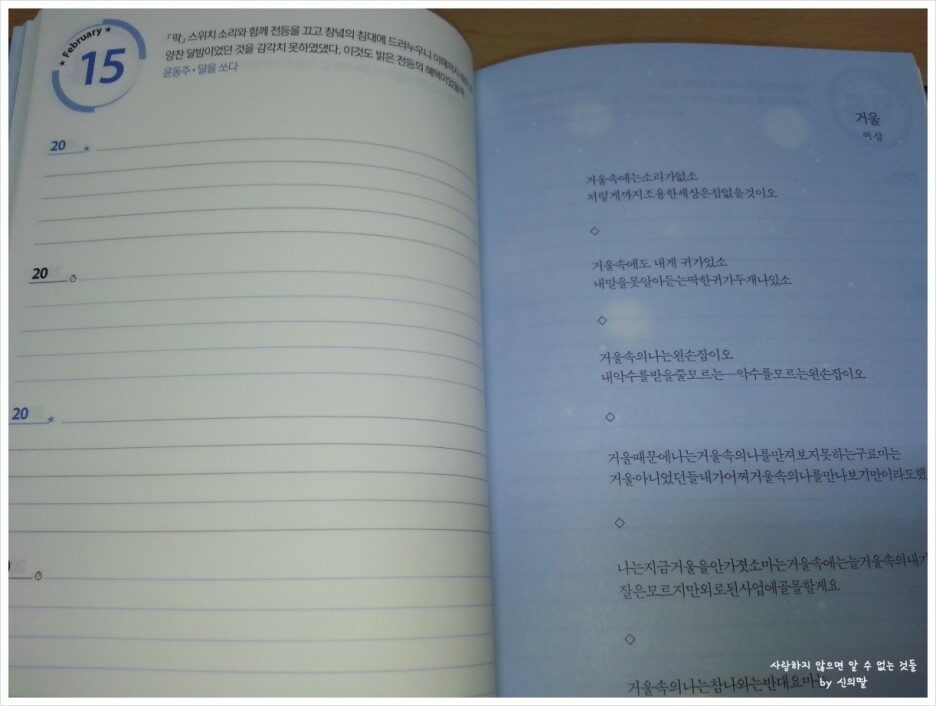 ★ February ★
15
「딱」 스위치 소리와 함께 전등을 끄고 창녘의 침대에 드러누우니 이때까지
양찬 달밤이었던 것을 감각치 못하였댔다. 이것도 밝은 전등의 혜택이었을까.
윤동주 · 달을 쏘다
20
20
20
거울
이상
거울속에는소리가없소
저렇게까지조용한세상은참없을것이오
◇
거울속에도 내게 귀가있소
내말을못알아듣는딱한귀가두개나있소
◇
거울속의나는왼손잡이오
내악수를받을줄모르는―악수를모르는왼손잡이오
◇
거울때문에나는거울속의나를만져보지못하는구료마는
거울아니었던들내가어찌거울속의나를만나보기만이라도했
◇
나는지금거울을안가졌소마는거울속에는늘거울속의내가
잘은모르지만외로된사업에골몰할게요
◇
거울속의나는참나와는반대요마
사랑하지 않으면 알 수 없는 것들
by 신의딸